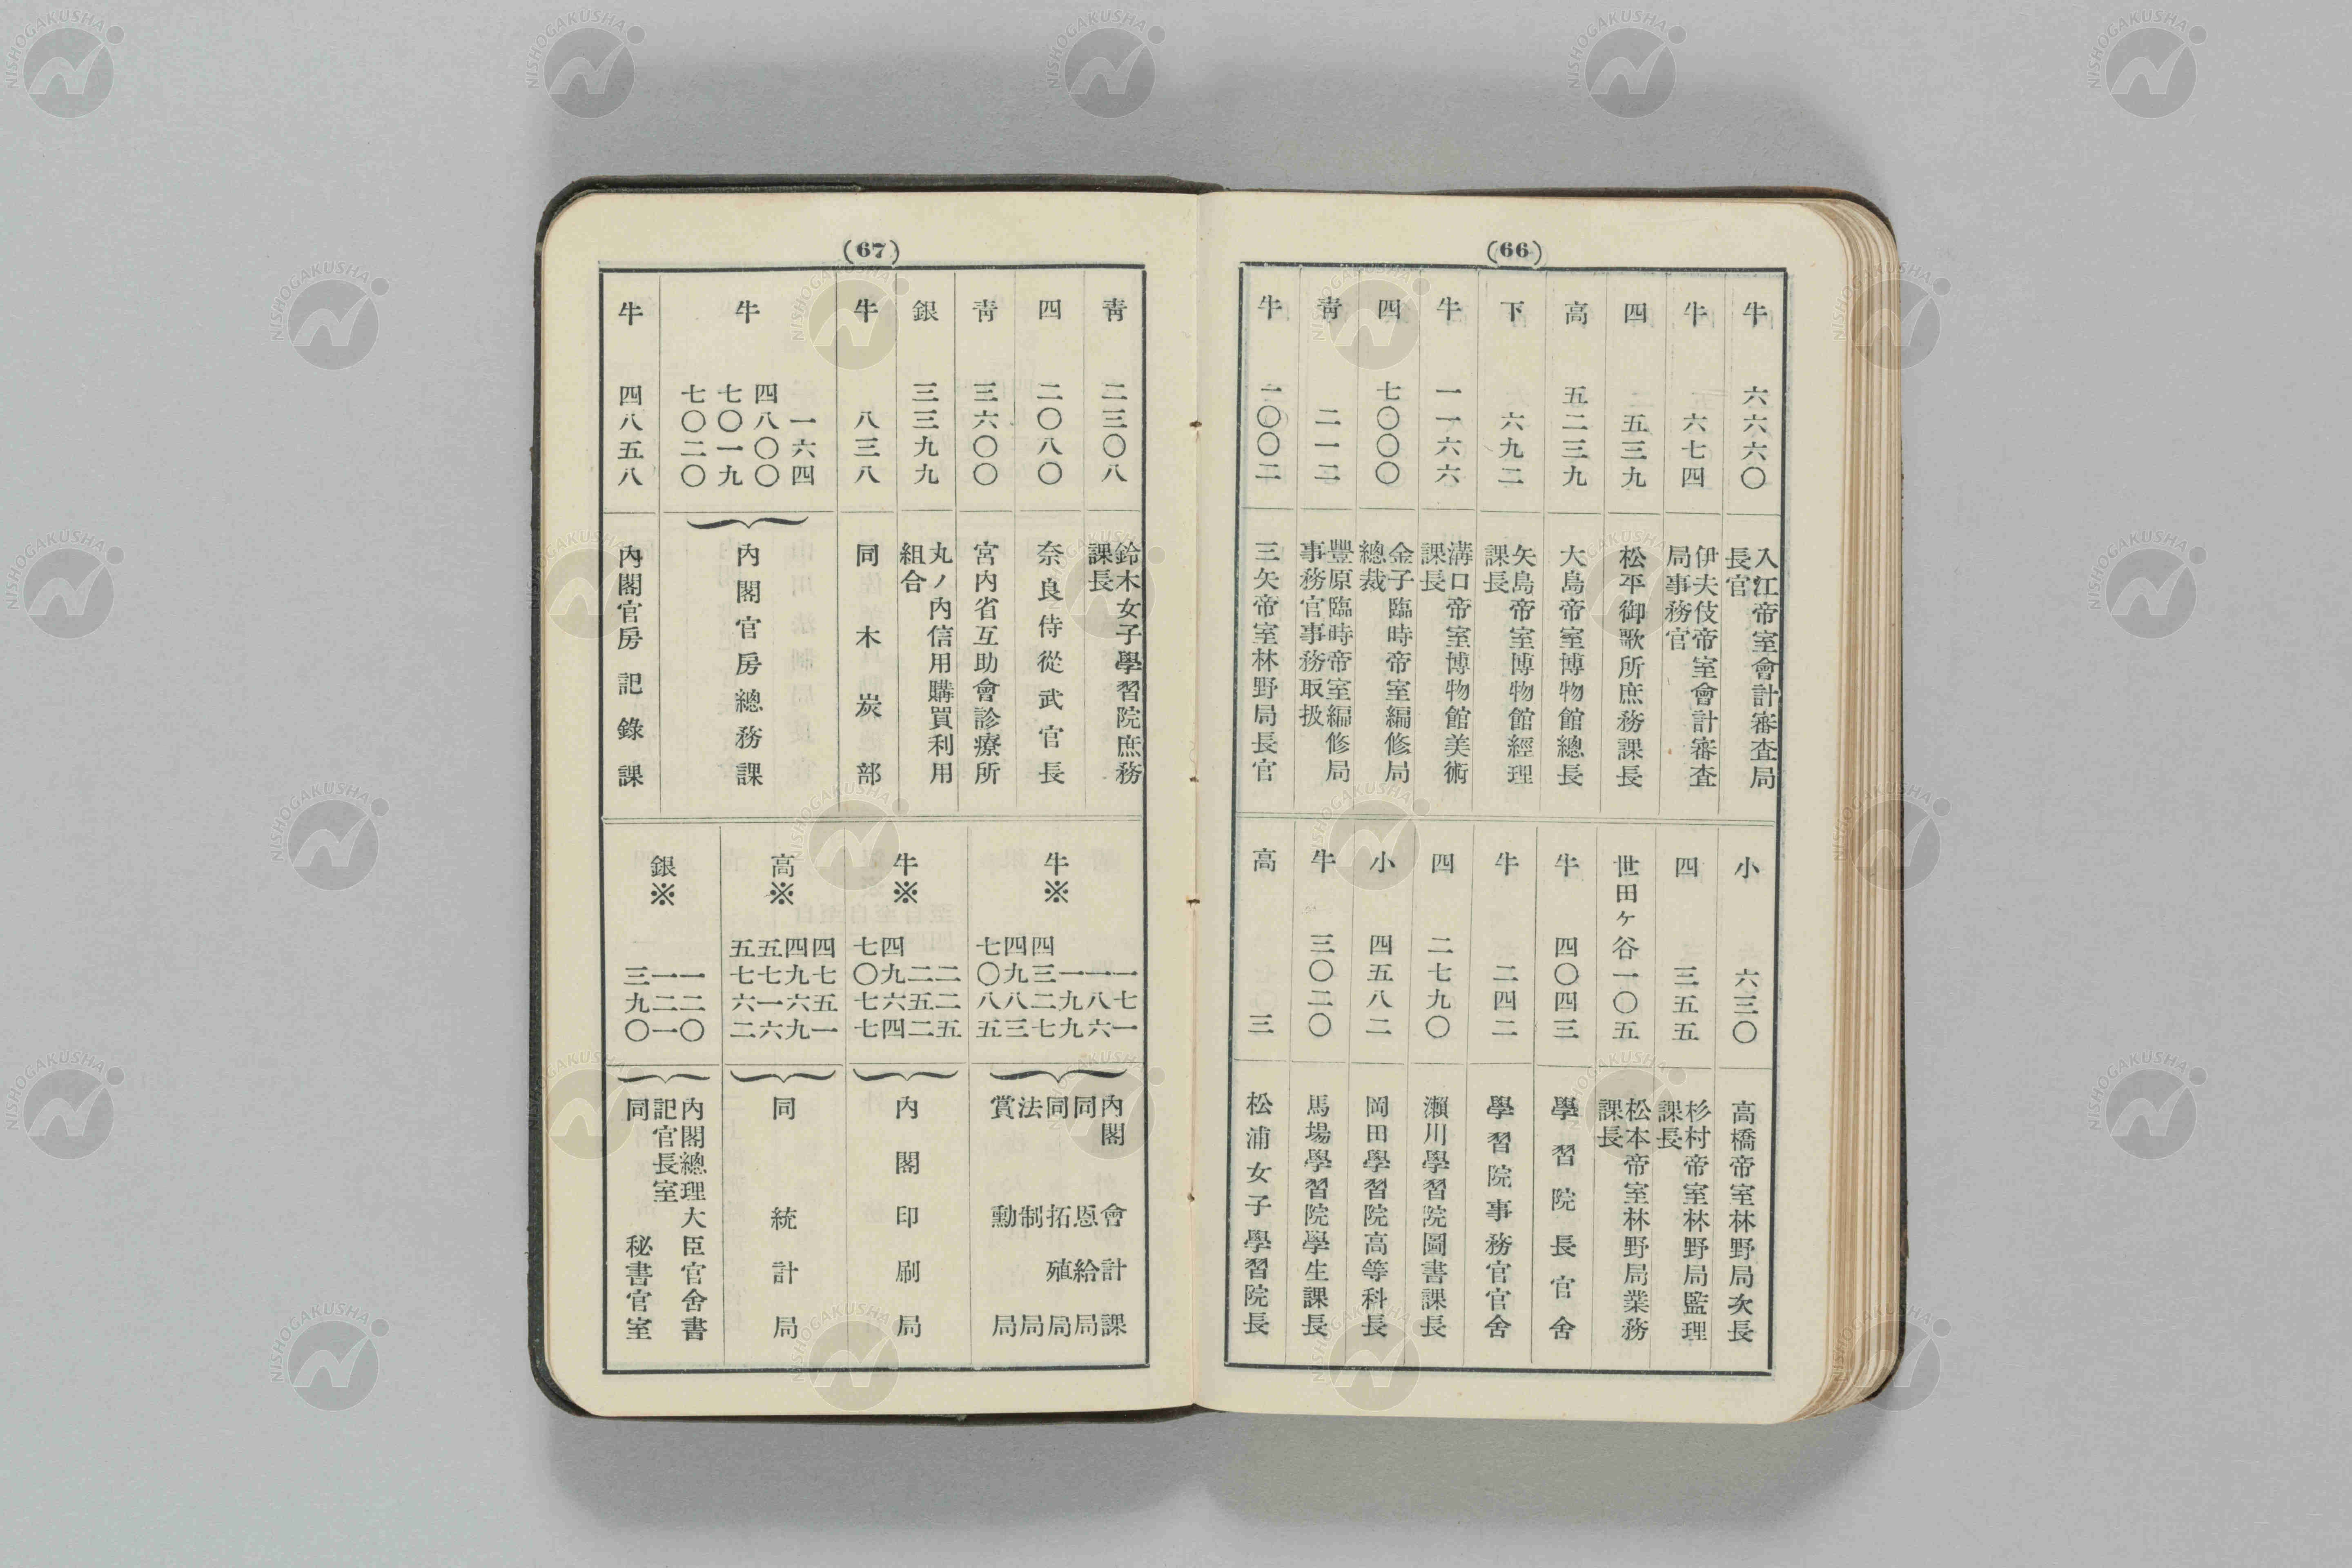 (66)
牛 六六六〇 入江帝室會計審査局
長官
牛 六七四 伊夫伎帝室會計審査
局事務官
四 五三九 松平御歌所庶務課長
高 五二三九 大島帝室博物館總長
下 六九二 矢島帝室博物館經理
課長
牛 一一六六 溝口帝室博物館美術
課長
四 七〇〇〇 金子臨時帝室編修局
總裁
靑 二一二 豐原臨時帝室編修局
事務官事務取扱
牛 一〇〇二 三矢帝室林野局長官
小 六三〇 高橋帝室林野局次長
四 三五五 杉村帝室林野局監理
課長
世田ヶ谷一〇五 松本帝室林野局業務
課長
牛 四〇四三 學習院長官舍
牛 二四二 學習院事務官官舍
四 二七九〇 瀨川學習院圖書課長
小 四五八二 岡田學習院高等科長
牛 三〇二〇 馬場學習院學生課長
高 三 松浦女子學習院長
(67)
靑 二三〇八 鈴木女子學習院庶務
課長
四 二〇八〇 奈良侍從武官長
靑 三六〇〇 宮內省互助會診療所
銀 三三九九 丸ノ內信用購買利用
組合
牛 八三八 同木炭部
牛
一六四
四八〇〇
七〇一九
七〇二〇
內閣官房總務課
牛 四八五八 內閣官房記錄課
牛※
一七一
一八六
一九九
四三二七
四九八三
七〇八五
內閣會計課
同恩給局
同拓殖局
法制局
賞勳局
牛※
二二五
二五二
四九六四
七〇七七
內閣印刷局
高※
四七五一
四九六九
五七一六
五七六二
同統計局
銀※
一二〇
一二一
三九〇
內閣總理大臣官舍書
記官長室
同秘書官室
NISHOGAKUSHA